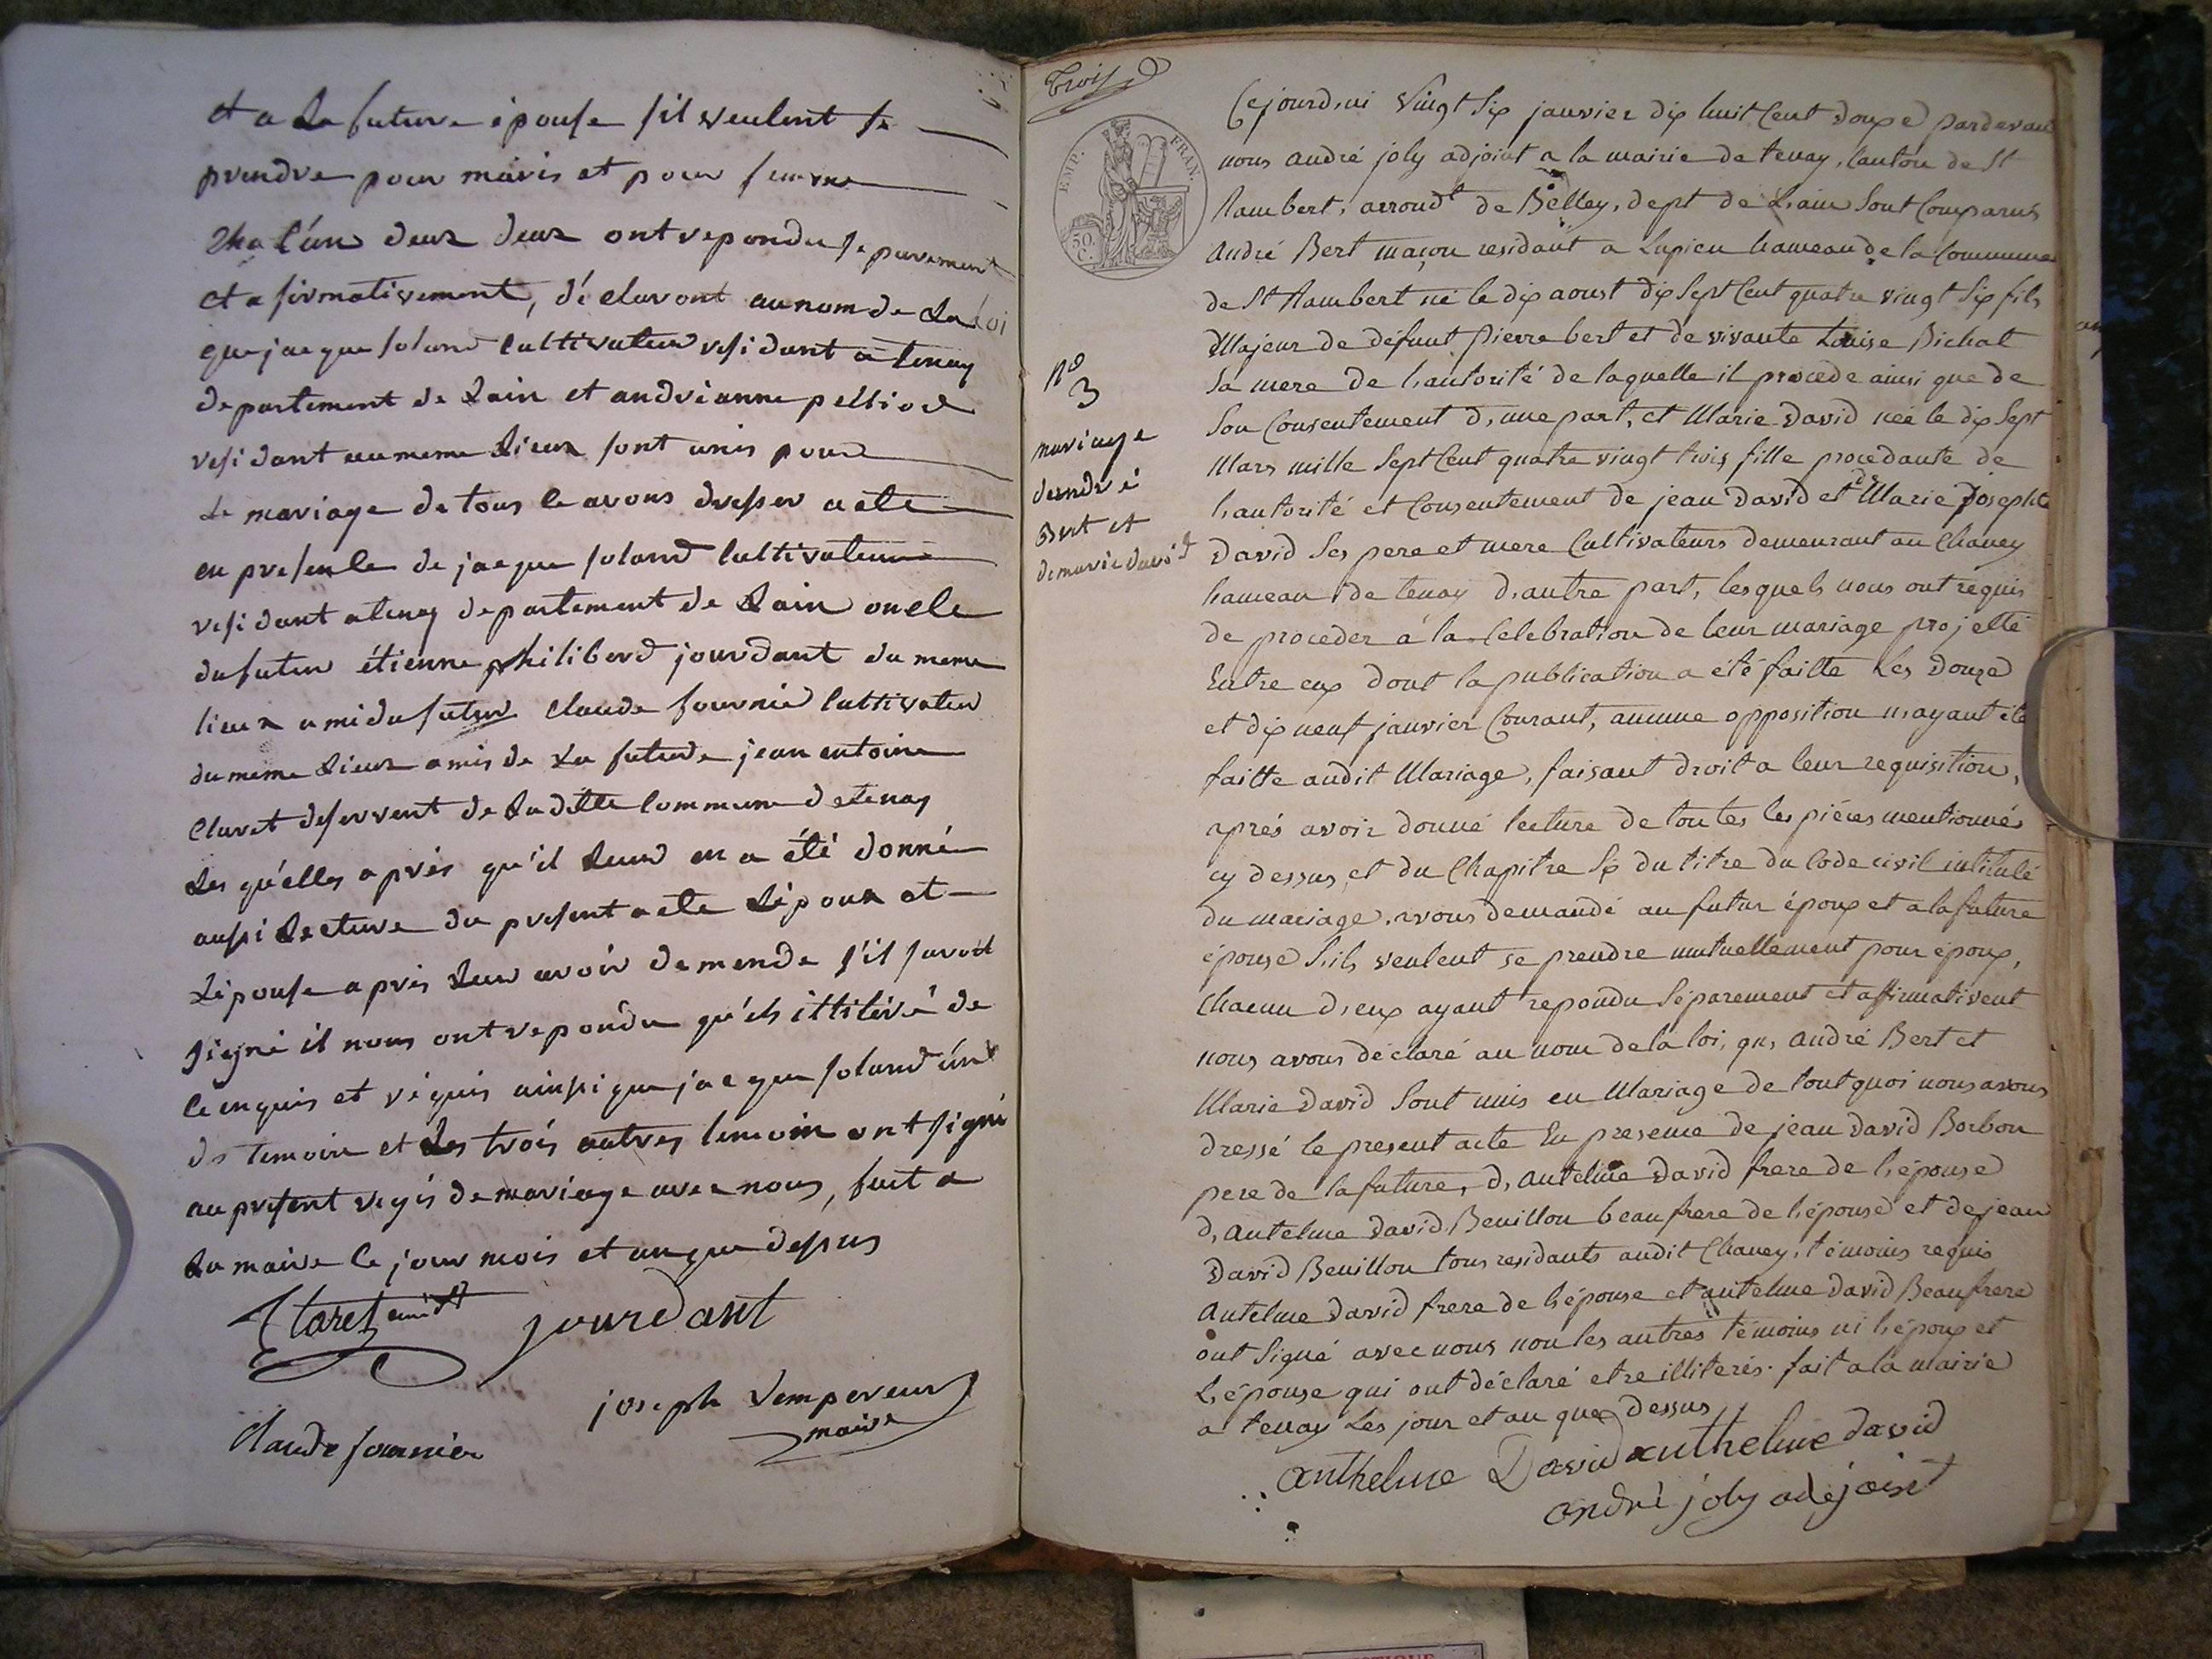 et a La future épouse s'il veulent se
prendre pour maris et pour femme
Cha l'un deux deux ont repondu separement
et afirmativement, déclaront au nom de La Loi
que jacque soland cultivateur residant a tenay
departement de Lain et andrianne pelliod
residant au meme Lieux sont unis pour
Le mariage de tous le avons dresser acte
en presence de jacque soland cultivateur
residant a tenay departement de Lain oncle
du futur étienne philiberd jourdant du meme
lieux ami du futur Claude fournié cultivateur
du meme Lieux amis de La future jean antoine
Claret deservent de La ditte commune de tenay
Les qu'elles aprés qu'il Leur en a été donné
aussi Lecture du present acte Lépoux et
Lépouse aprés Leur avoir demende s'il savoit
signé il nous ont repondu qu'els ittiliré de
ce enquis et réquis ainssi que jacque soland ún
des temoin et Les trois autres temoin ont signé
au present regis de mariage avec nous, fait a
La maire le jour mois et an que dessus
Claret
jourdant
joseph Lempereur
maire
Claude fournier
Trois
EMP. FRAN.
50.
C.
No
3
mariage
dandré
Bert et
de marie david
Cejourd,ui Vingt Six janvier dix huit Cent douze pardevant
nous andré joly adjoint a la mairie de tenay, Canton de St
Rambert, arrondt de Belley, dept de L,ain Sont Comparus
André Bert maçon residant a Lupieu hameau de la Commune
de St Rambert né le dix aoust dix Sept Cent quatre vingt Six fils
Majeur de défunt Pierre bert et de vivante Louise Bichat
Sa mere de l,autorité de laquelle il procede ainsi que de
Son Consentement d,une part, et Marie David née le dix Sept
Mars mille Sept Cent quatre vingt trois fille procedante de
l,autorité et Consentement de jean David et de Marie Josephte
David Ses pere et mere Cultivateurs demeurant au Chaney
hameau de tenay d,autre part, lesquels nous ont requis
de proceder a la Celebration de leur mariage projetté
Entre eux dont la publication a été faitte Les douze
et dix neuf janvier Courant, aucune opposition n,ayant été
faitte audit Mariage, faisant droit a leur requisition,
aprés avoir donné lecture de toutes les piéces mentionnés
cy dessus, et du Chapitre Six du titre du Code civil intitulé
du mariage, avons demandé au futur époux et a la future
épouse S,ils veulent se prendre mutuellement pour époux,
Chacun d,eux ayant repondu Séparement et affirmativent
nous avons déclaré au nom de la loi, que André Bert et
Marie David Sont unis en Mariage de tout quoi nous avons
dressé le present acte En presence de jean David Borbon
pere de la future, d, antelme David frere de l,épouse
d, antelme David Beuillon beaufrere de l,épouse et de jean
David Beuillon tous residants audit Chaney, témoins requis
Antelme David frere de l,épouse et antelme David Beaufrere
ont Signé avec nous non les autres témoins ni l,époux et
L,épouse qui ont déclaré etre illiterés. fait a la mairie
a tenay Les jour et an que dessus
anthelme David anthelme david
andré joly adejoint